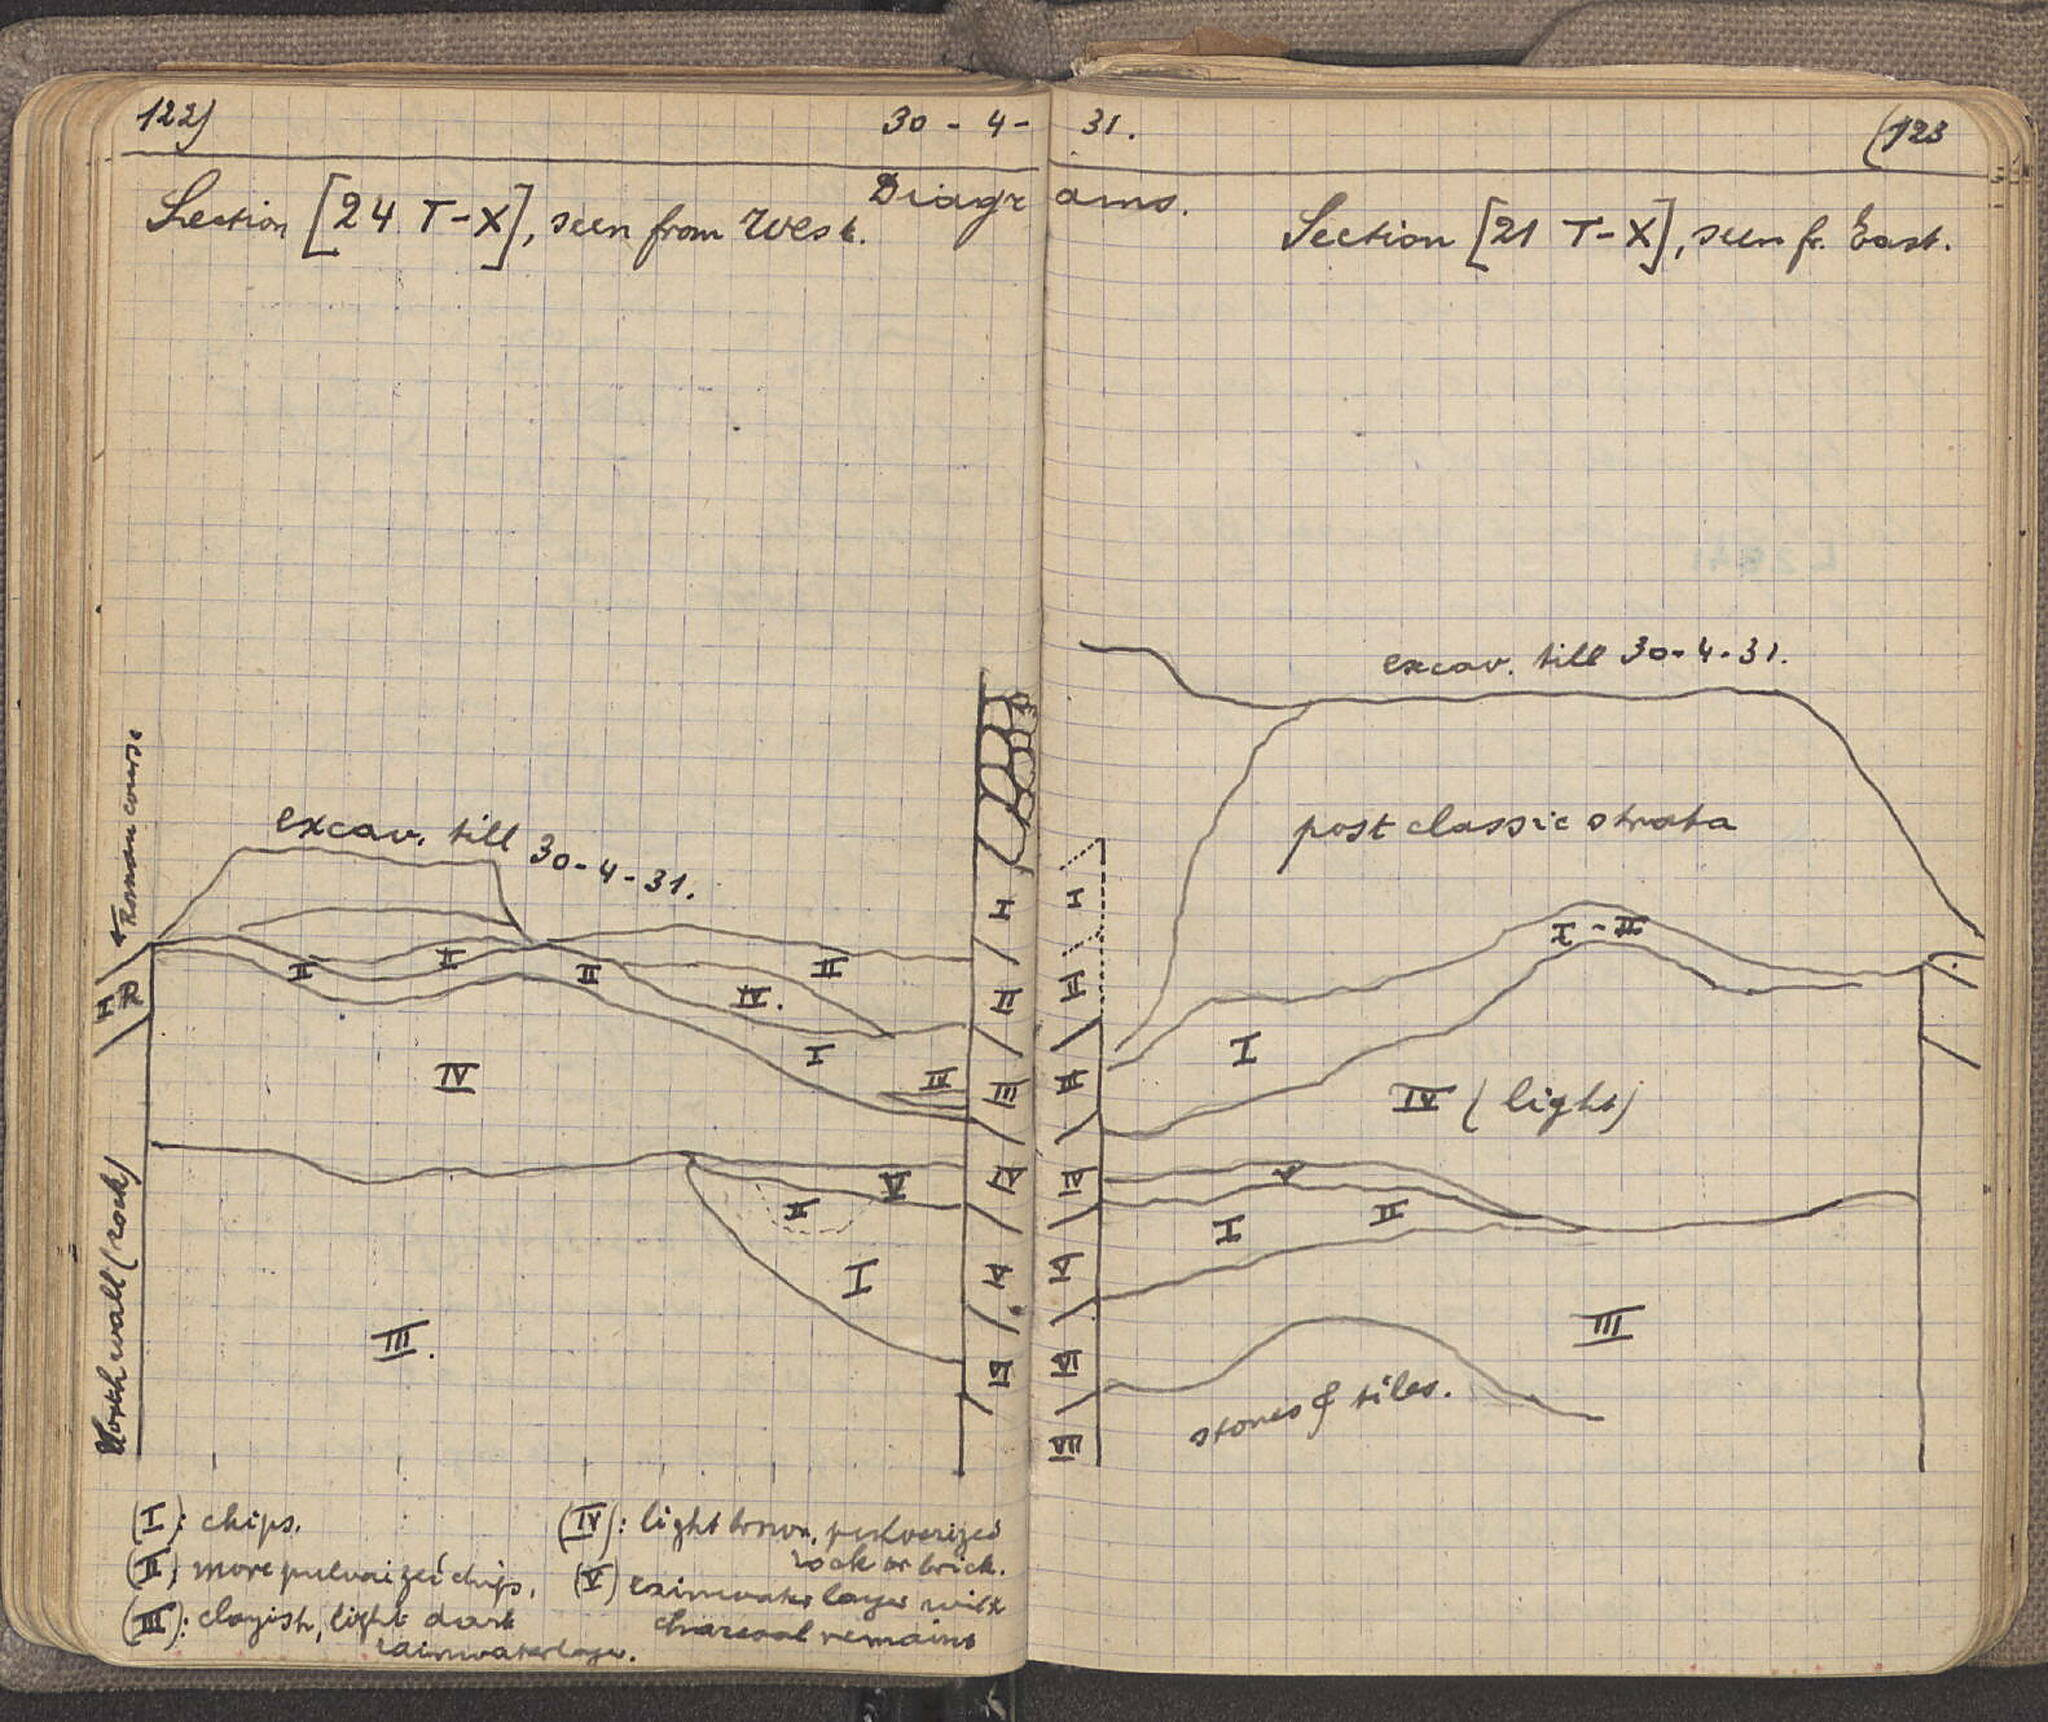 122)
30 - 4 - 31.
(123
Diagrams.
Section [24 T-X], seen from West.
excav. till 30-4-31.
Roman course
R
II
II
II
II
IV.
I
III
IV
V
II
I
III.
North wall (rock)
I
II
III
IV
V
VI
(I): chips.
(II) more pulvaized chips.
(III): clayish, light dark
rainwaterlayer.
(IV): light brown, pulverized
rock or brick.
(V) rainwater layer with
charcoal remains
Section [21 T-X], seen fr. East.
excav. till 30-4-31.
post classic strata
I - II
I
IV (light)
V
I
II
III
stones & tiles.
I
II
III
IV
V
VI
VII